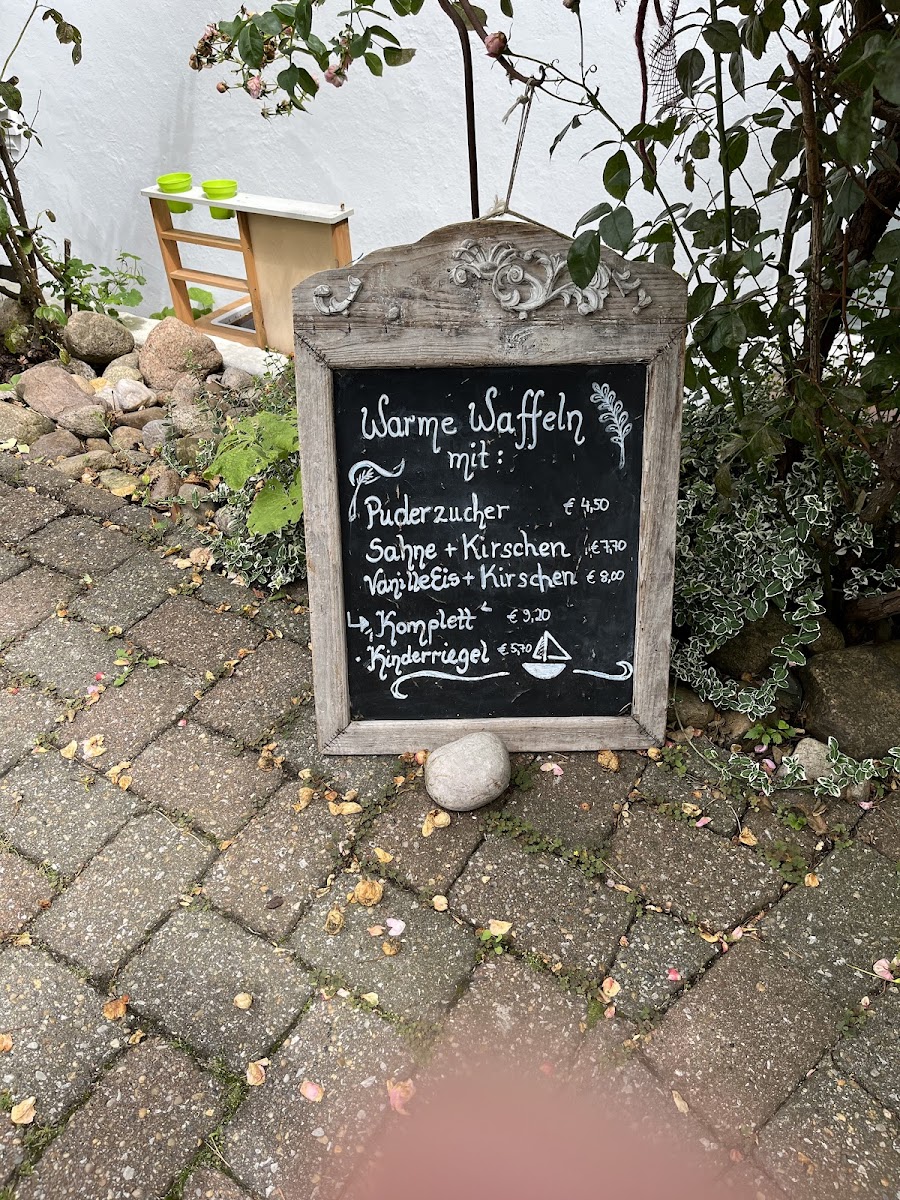 Warme Waffeln
mit:
Puderzucher € 4,50
Sahne + Kirschen € 7,70
VanilleEis + Kirschen € 8,00
Komplett € 9,20
Kinderriegel € 5,70